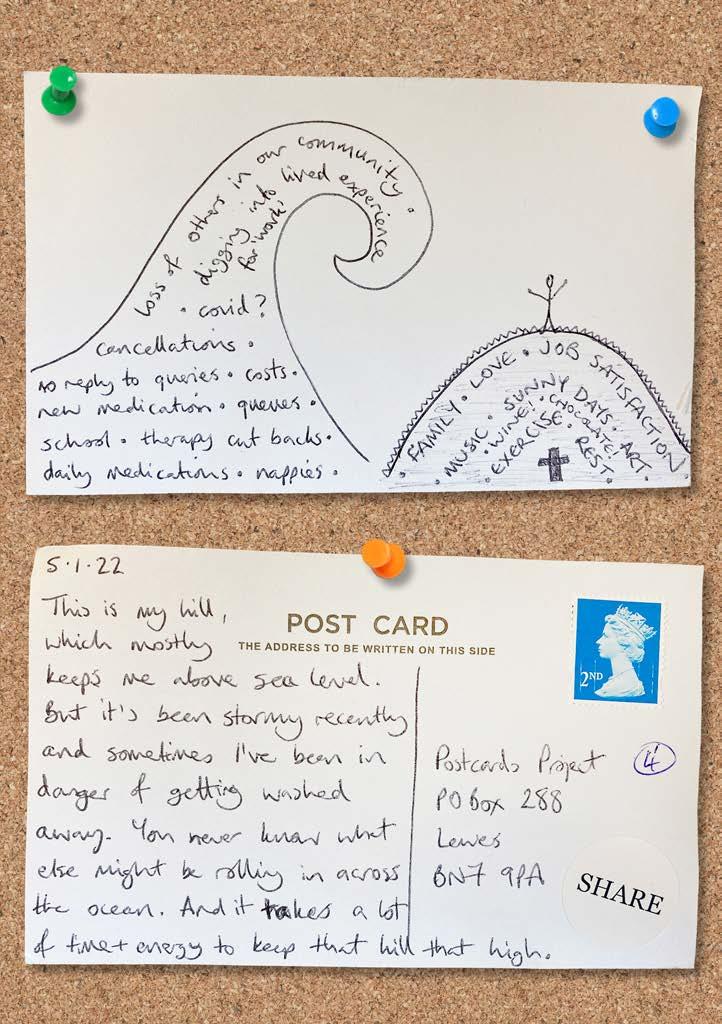 loss of others in our community.
digging into lived experience
for 'work'
• covid?
cancellations •
no reply to queries • costs •
new medication • queues •
school • therapy cut backs •
daily medications • nappies •
• FAMILY • LOVE • JOB SATISFACTION
MUSIC • SUNNY DAYS • ART
• WINE! • CHOCOLATE!
EXERCISE • REST
5·1·22
This is my hill,
which mostly
keeps me above sea level.
But it's been stormy recently
and sometimes I've been in
danger of getting washed
away. You never know what
else might be rolling in across
the ocean. And it takes a lot
of time + energy to keep that hill that high.
POST CARD
THE ADDRESS TO BE WRITTEN ON THIS SIDE
2ND
Postcards Project
PO Box 288
Lewes
BN7 9PA
4
SHARE